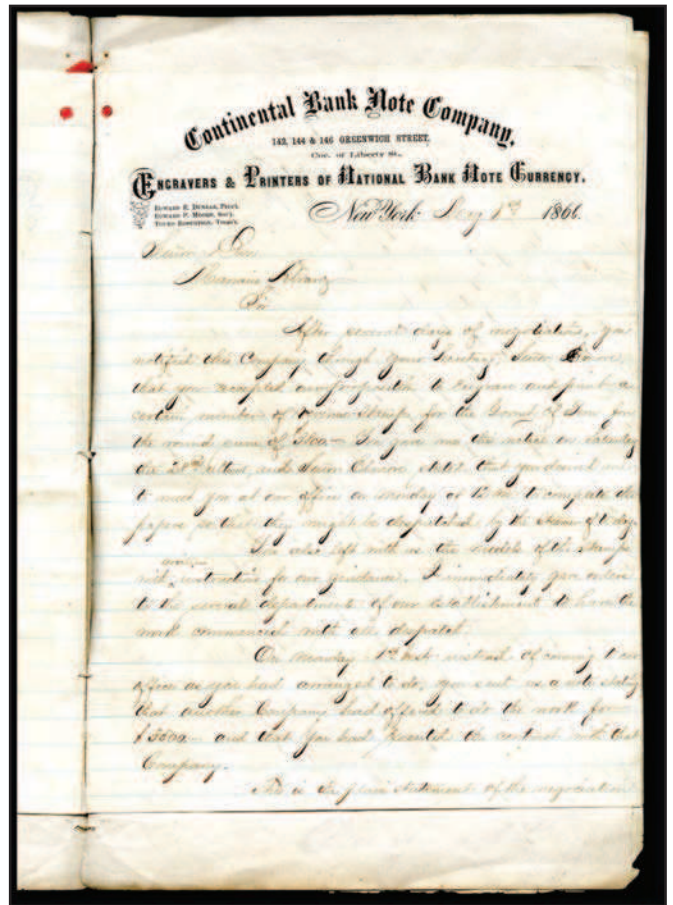 Continental Bank Note Company,
142, 144 & 146 GREENWICH STREET,
Cor. of Liberty St.,
ENGRAVERS & PRINTERS OF NATIONAL BANK NOTE CURRENCY.
New York 1866
Sir
After several days of negotiations, you
notified this Company through your Secretary, Senor
that you accepted our proposition to Engrave and print a
certain number of Stamps for the Govmt of
the round sum of You gave me this notice on Saturday
the and Senor stated that you desired me
to meet you at our office on Monday at to complete the
papers so that they might be despatched by the Steamer of today
You also left with us the models of the Stamps
with instructions for our guidance. I immediately gave orders
to the several departments of our establishment to have the
work commenced with all despatch.
On Monday instead of coming to our
office as you had arranged to do, you sent us a note stating
that another Company had offered to do the work for
and that you had the contract with that
Company.
This is the plain statement of the negotiation